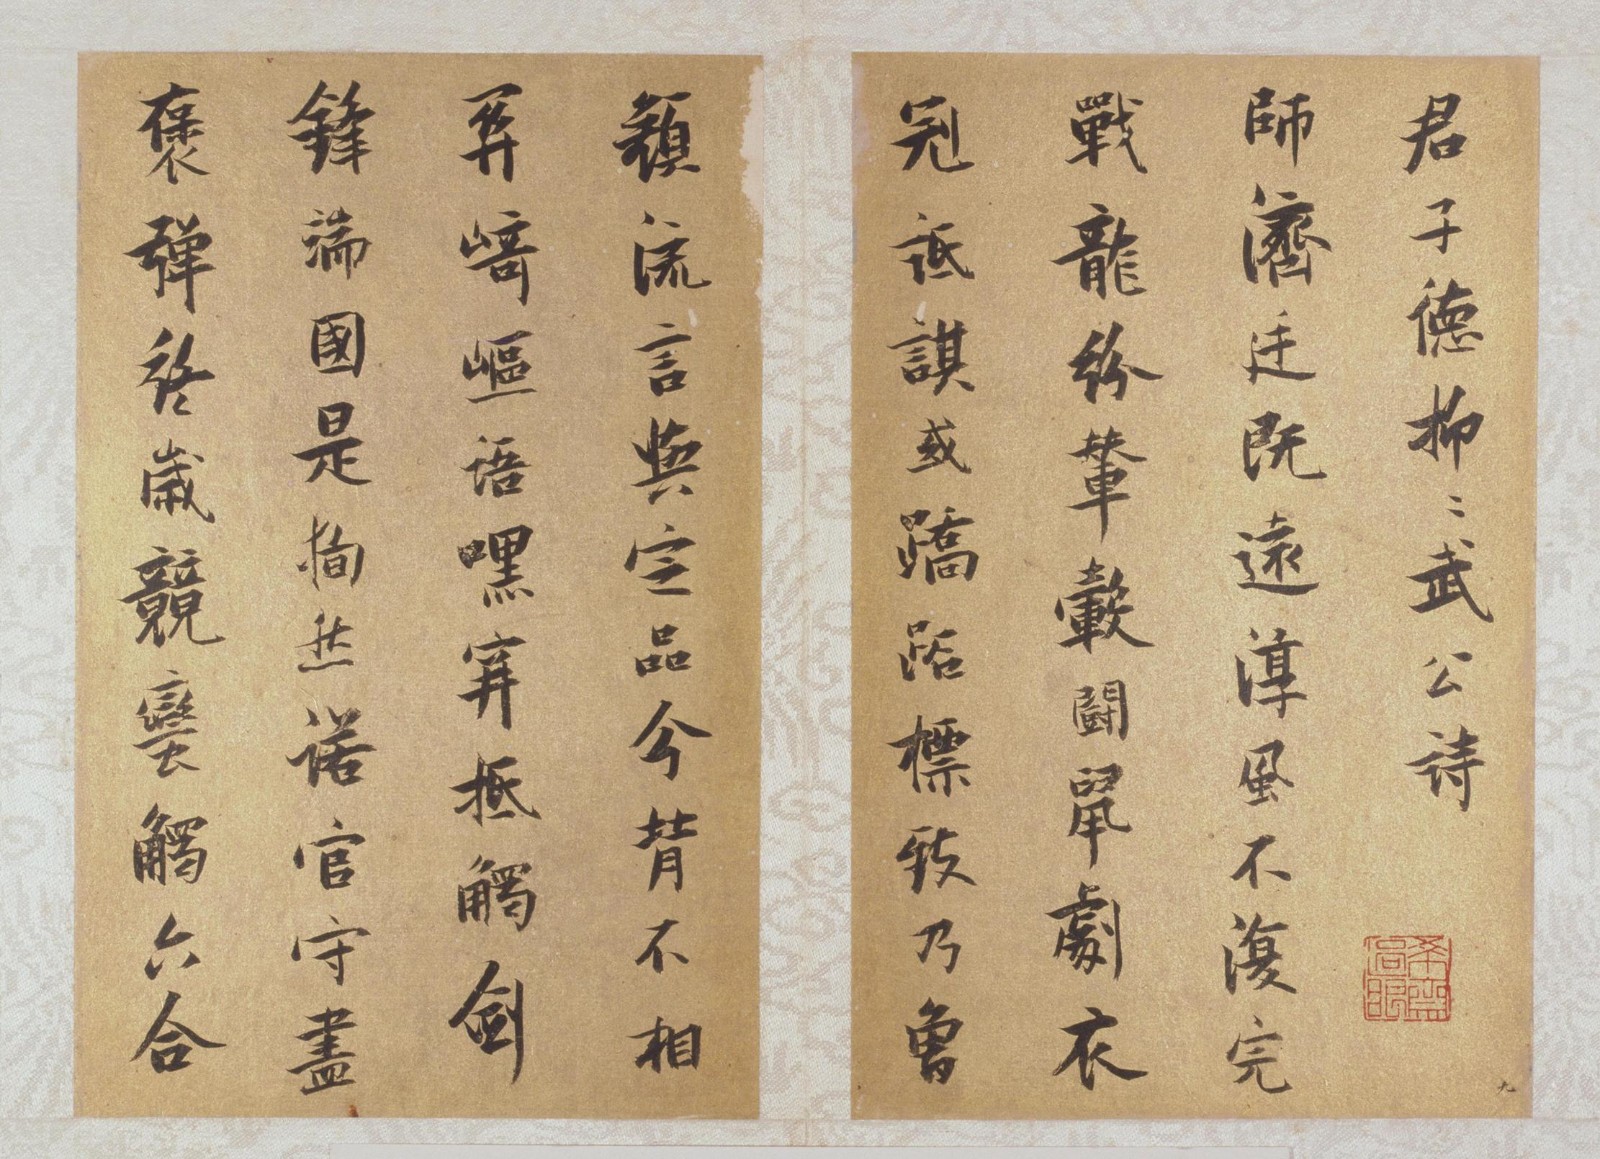 君子德抑〻武公詩
師濟廷既遠淳風不復完
戰龍紛輦轂鬪鼠劇衣
冠詆諆或蹻跖標致乃魯
顏流言與定品今昔不相
崎嶇語嘿穽抵觸劍
鋒端國是狥然諾官守盡
褒彈終歲競蠻觸六合
九